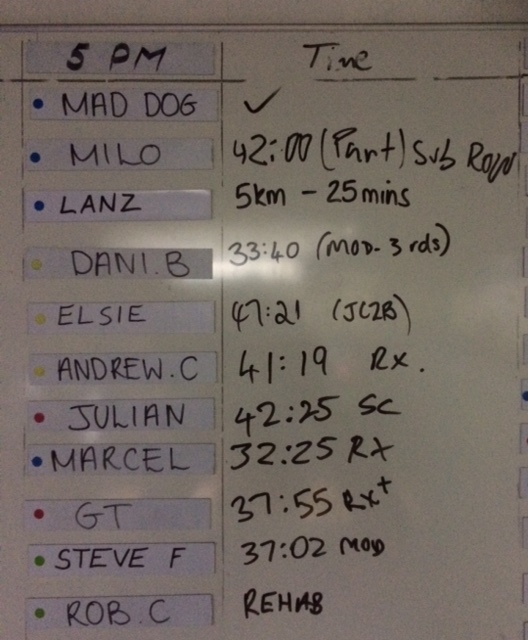 5 PM Time
MAD DOG ✓
MILO 42:00 (Part) Sub Row
LANZ 5km - 25mins
DANI.B 33:40 (MOD- 3 rds)
ELSIE 47:21 (JC2B)
ANDREW.C 41:19 Rx.
JULIAN 42:25 SC
MARCEL 32:25 RX
GT 37:55 Rx+
STEVE F 37:02 MOD
ROB.C REHAB